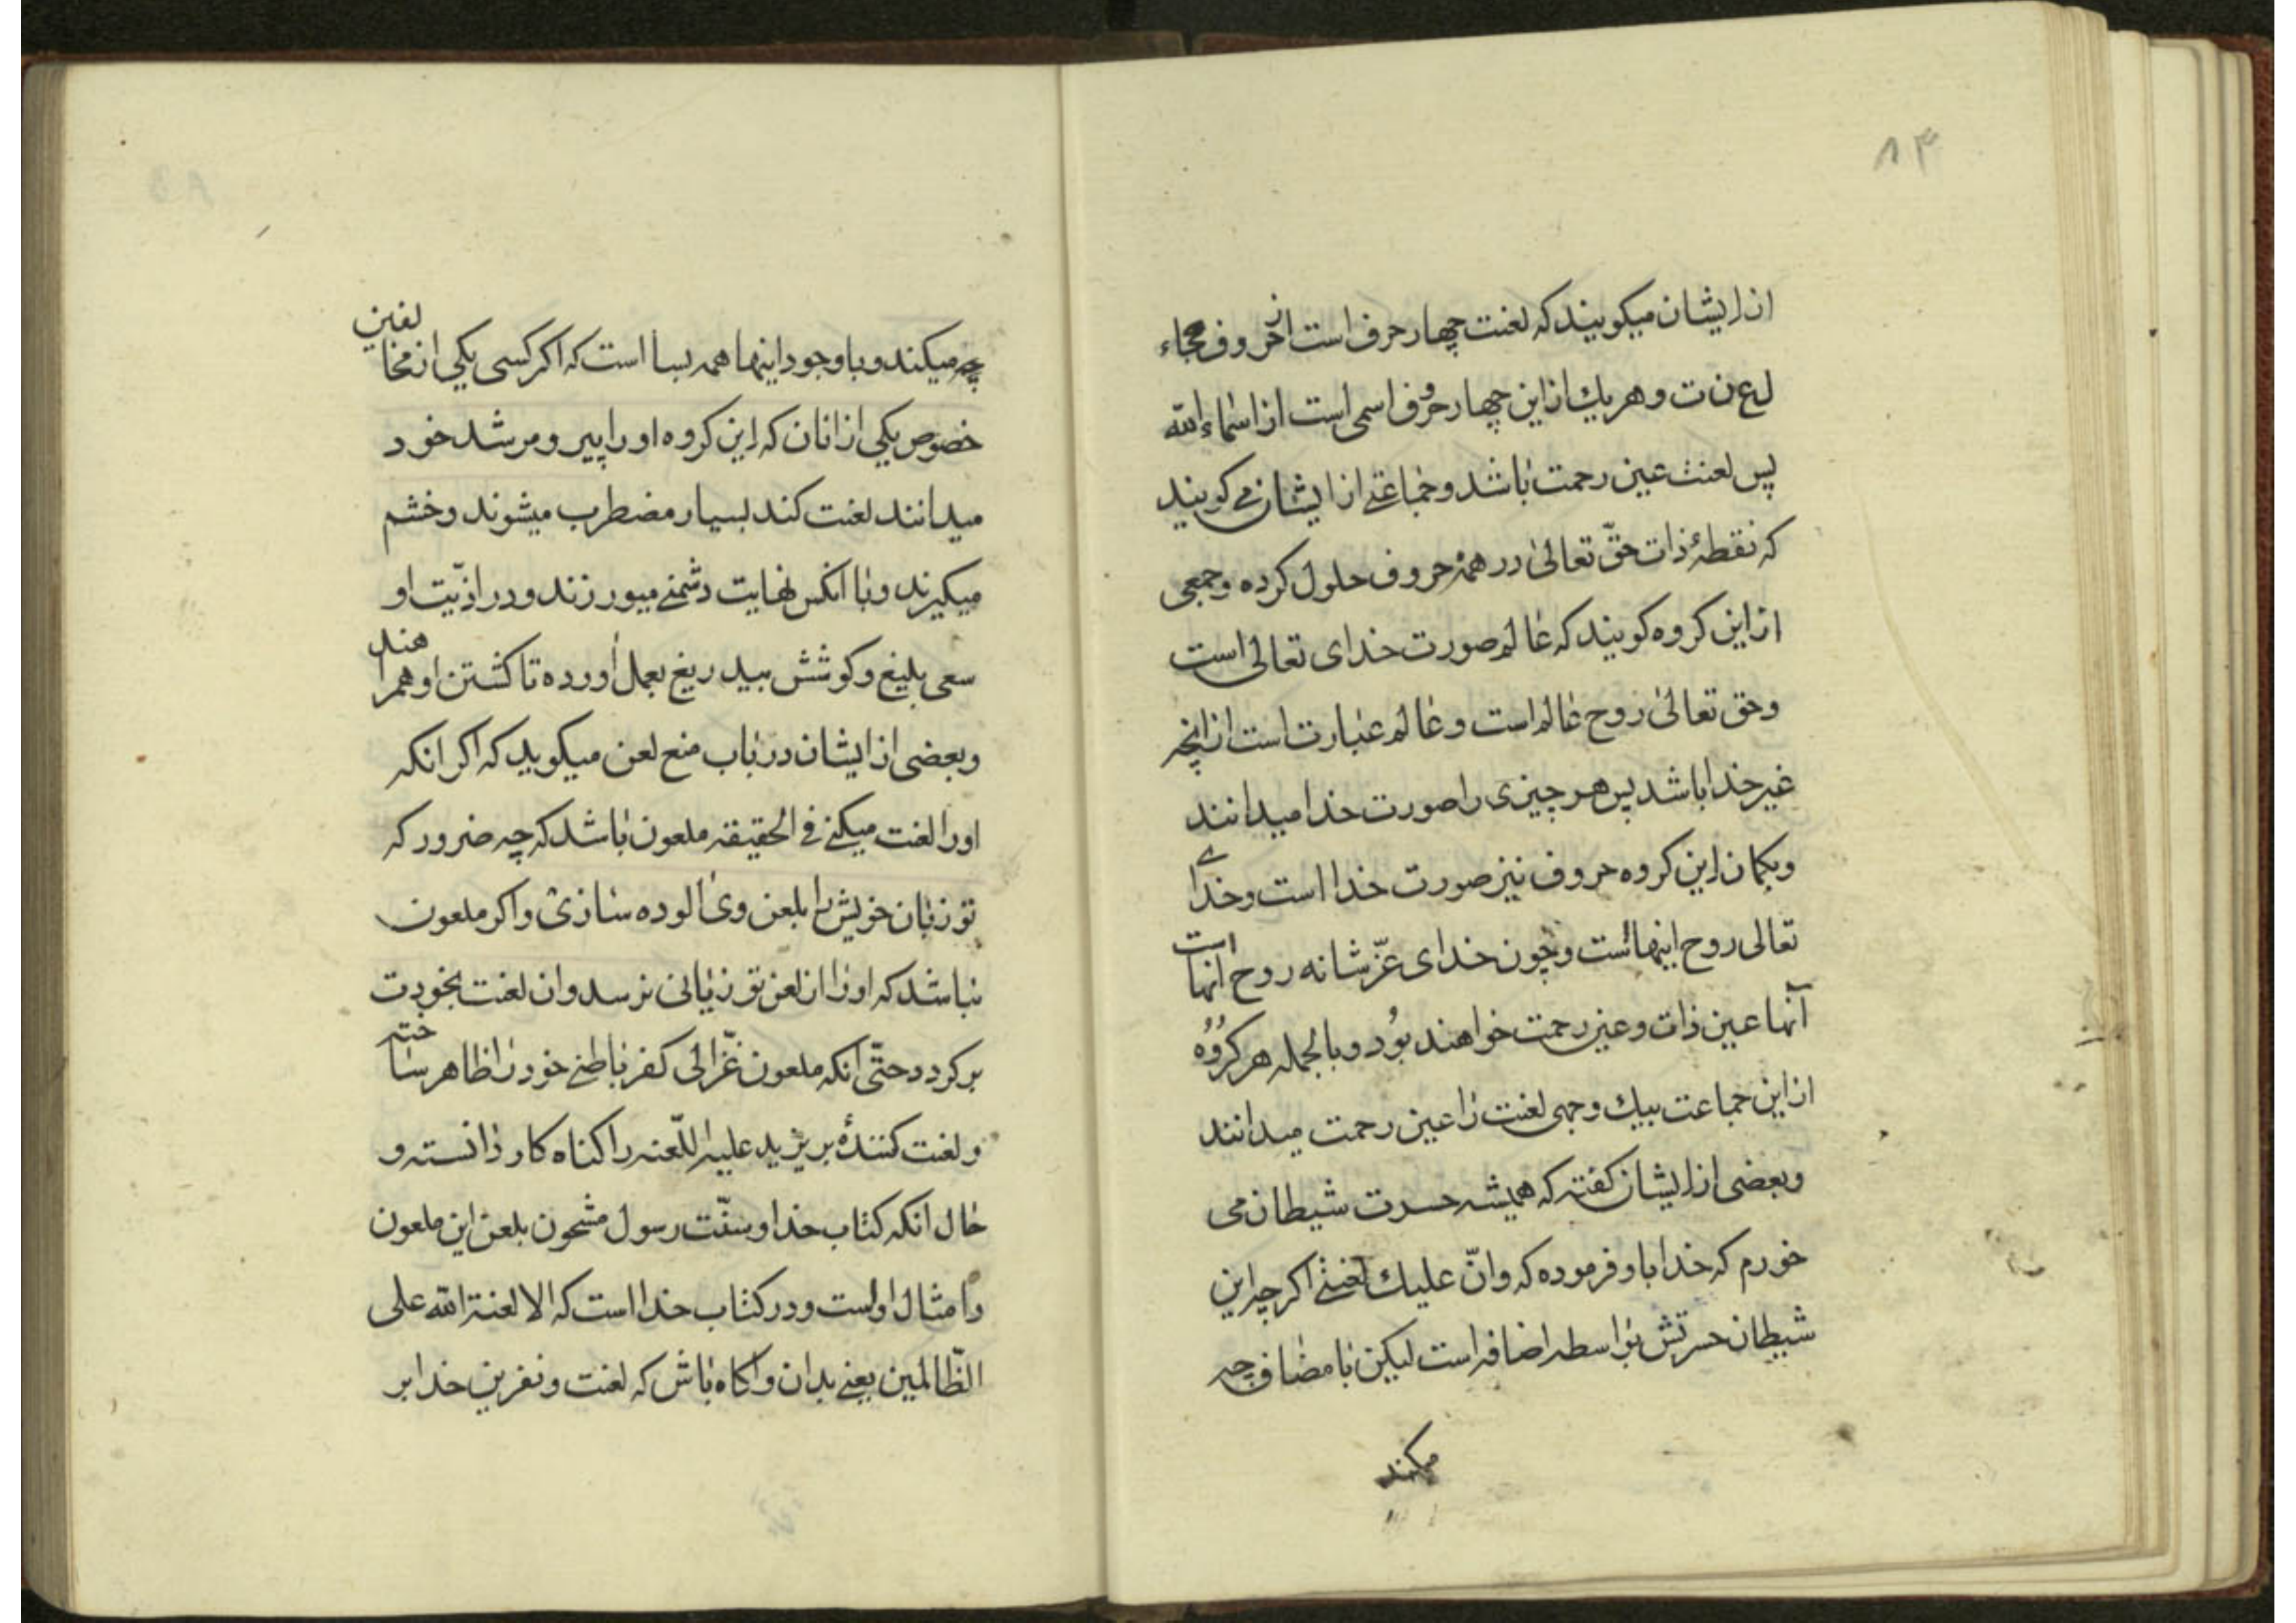 ۸۴
از ایشان میکویند که لعنت چهار حرف است از حروف هجاء
ل ع ن ت و هر یك از این چهار حروف اسمی است از اسماء الله
پس لعنت عین رحمت باشد و جماعتی از ایشان می کویند
که نقطهٔ ذات حقّ تعالیٰ در همهٔ حروف حلول کرده و جمعی
از این کروه کویند که عالم صورت خدای تعالی است
و حق تعالیٰ روح عالم است و عالم عبارت است از آنچه
غیر خدا باشد پس هر چیزی را صورت خدا میدانند
و بکمان این کروه حروف نیز صورت خدا است و خدای
تعالی روح اینهااست و چون خدای عزّ شانه روح آنها است
آنها عین ذات و عین رحمت خواهند بود و بالجمله هر کروه
از این جماعت بیك وجهی لعنت را عین رحمت میدانند
و بعضی از ایشان کفته که همیشه حسرت شیطان می
خورم که خدا باو فرموده که وانّ علیك لعنتی اکرچه این
شیطان حسرتش بواسطه اضافه است لیکن با مضاف چه
میکند
چه میکند و با وجود اینها همه بسا است که اکر کسی یکی از مخالفین
خصوص یکی از انان که این کروه او را پیر و مرشد خود
میدانند لعنت کند بسیار مضطرب میشوند و خشم
میکیرند و با انکس نهایت دشمنی میورزند و در اذیّت او
سعی بلیغ و کوشش بیدریغ بعمل آورده تا کشتن او همراهند
و بعضی از ایشان در باب منع لعن میکوید که اکر انکه
او را لعنت میکنی فی الحقیقه ملعون باشد که چه ضرور که
تو زبان خویش را بلعن وی آلوده سازی و اکر ملعون
نباشد که او را از لعن تو زیانی نرسد و ان لعنت بخودت
برکردد حتّی انکه ملعون غزّالی کفر باطنی خود را ظاهر ساخته
و لعنت کنندهٔ بر یزید علیه اللّعنه را کناه کار دانسته و
حال انکه کتاب خدا و سنّت رسول مشحون بلعن این ملعون
و امثال اواست و در کتاب خدا است که الا لعنة الله علی
الظّالمین یعنی بدان و آکاه باش که لعنت و نفرین خدا بر